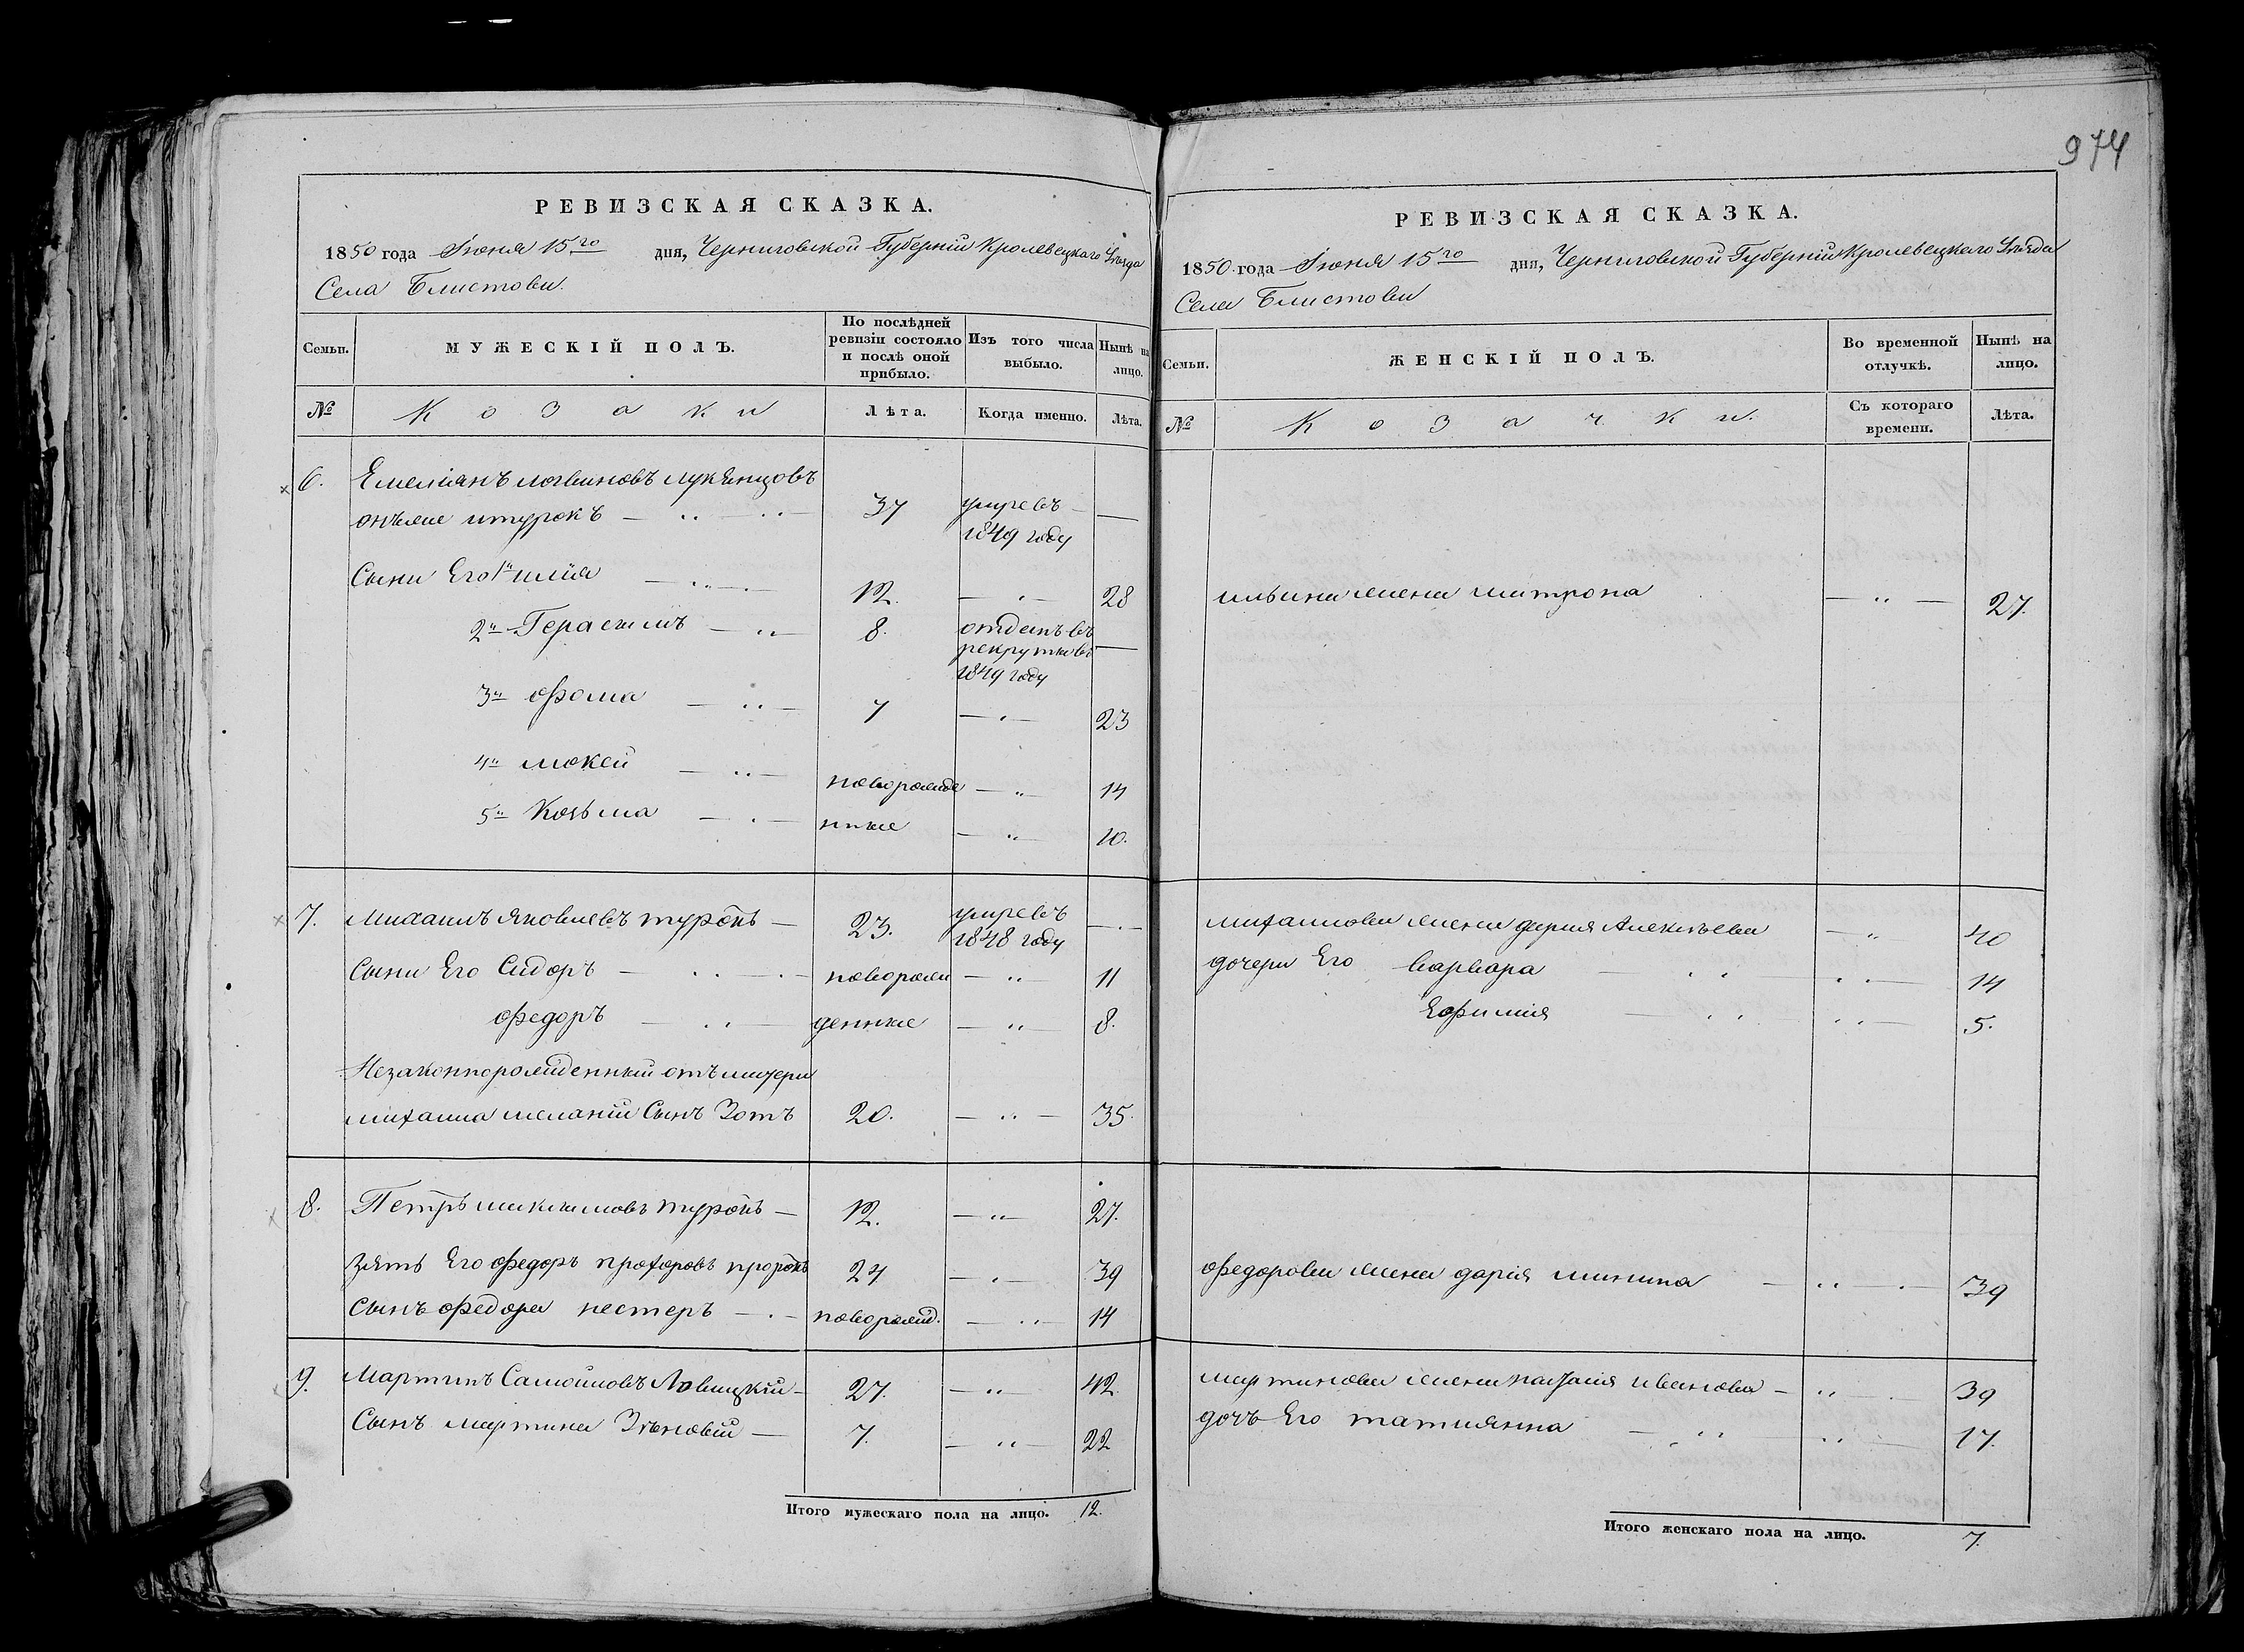 974
РЕВИЗСКАЯ СКАЗКА.
1850 года Іюня 15го дня, Черниговской Губерніи Кролевецкаго Уѣзда
Села Блистови.
Семьи. МУЖЕСКІЙ ПОЛЪ. По послѣдней ревизіи состояло и послѣ оной прибыло. Изъ того числа выбыло. Нынѣ на лицо.
№ Козаки Лѣта. Когда именно. Лѣта.
6. Емеліанъ логвиновъ
онъже и турокъ — 37 умревъ —
1849 году
Сыни Его 1й илія — 12. — 28
2й Герасимъ — 8. отданъ въ —
рекруты въ
1849 году
3й фома — 7 — 23
4й мокей — новорожде — 14
5й Козьма — нные — 10.
7. Михаилъ яковлевъ турокъ — 23. умревъ —
1848 году
Сыни Его Сидоръ — новорож — 11
федоръ — денные — 8.
Незаконнорожденный отъ матери
михаила меланіи Сынъ Зотъ 20. — 35.
8. Петръ максимовъ турокъ — 12. — 27.
зять Его федоръ прохоровъ 24 — 39
Сынъ федора нестеръ — новорожд. — 14
9. Мартинъ Самойловъ Ловицкій — 27. — 42.
Сынъ мартина Зѣновій — 7. — 22
Итого мужескаго пола на лицо. 12.
РЕВИЗСКАЯ СКАЗКА.
1850 года Іюня 15го дня, Черниговской Губерніи Кролевецкаго Уѣзда
Села Блистови
Семьи. ЖЕНСКІЙ ПОЛЪ. Во временной отлучкѣ. Нынѣ на лицо.
№ Козачки. Съ котораго времени. Лѣта.
ильина жена матрона — 27.
михаилова жена дарія Алексѣева — 40
дочери Его варвара — 14
Ефимія — 5.
федорова жена дарія минина — 39
мартинова жена наталія иванова — 39
дочь Его татиянна — 17.
Итого женскаго пола на лицо. 7.